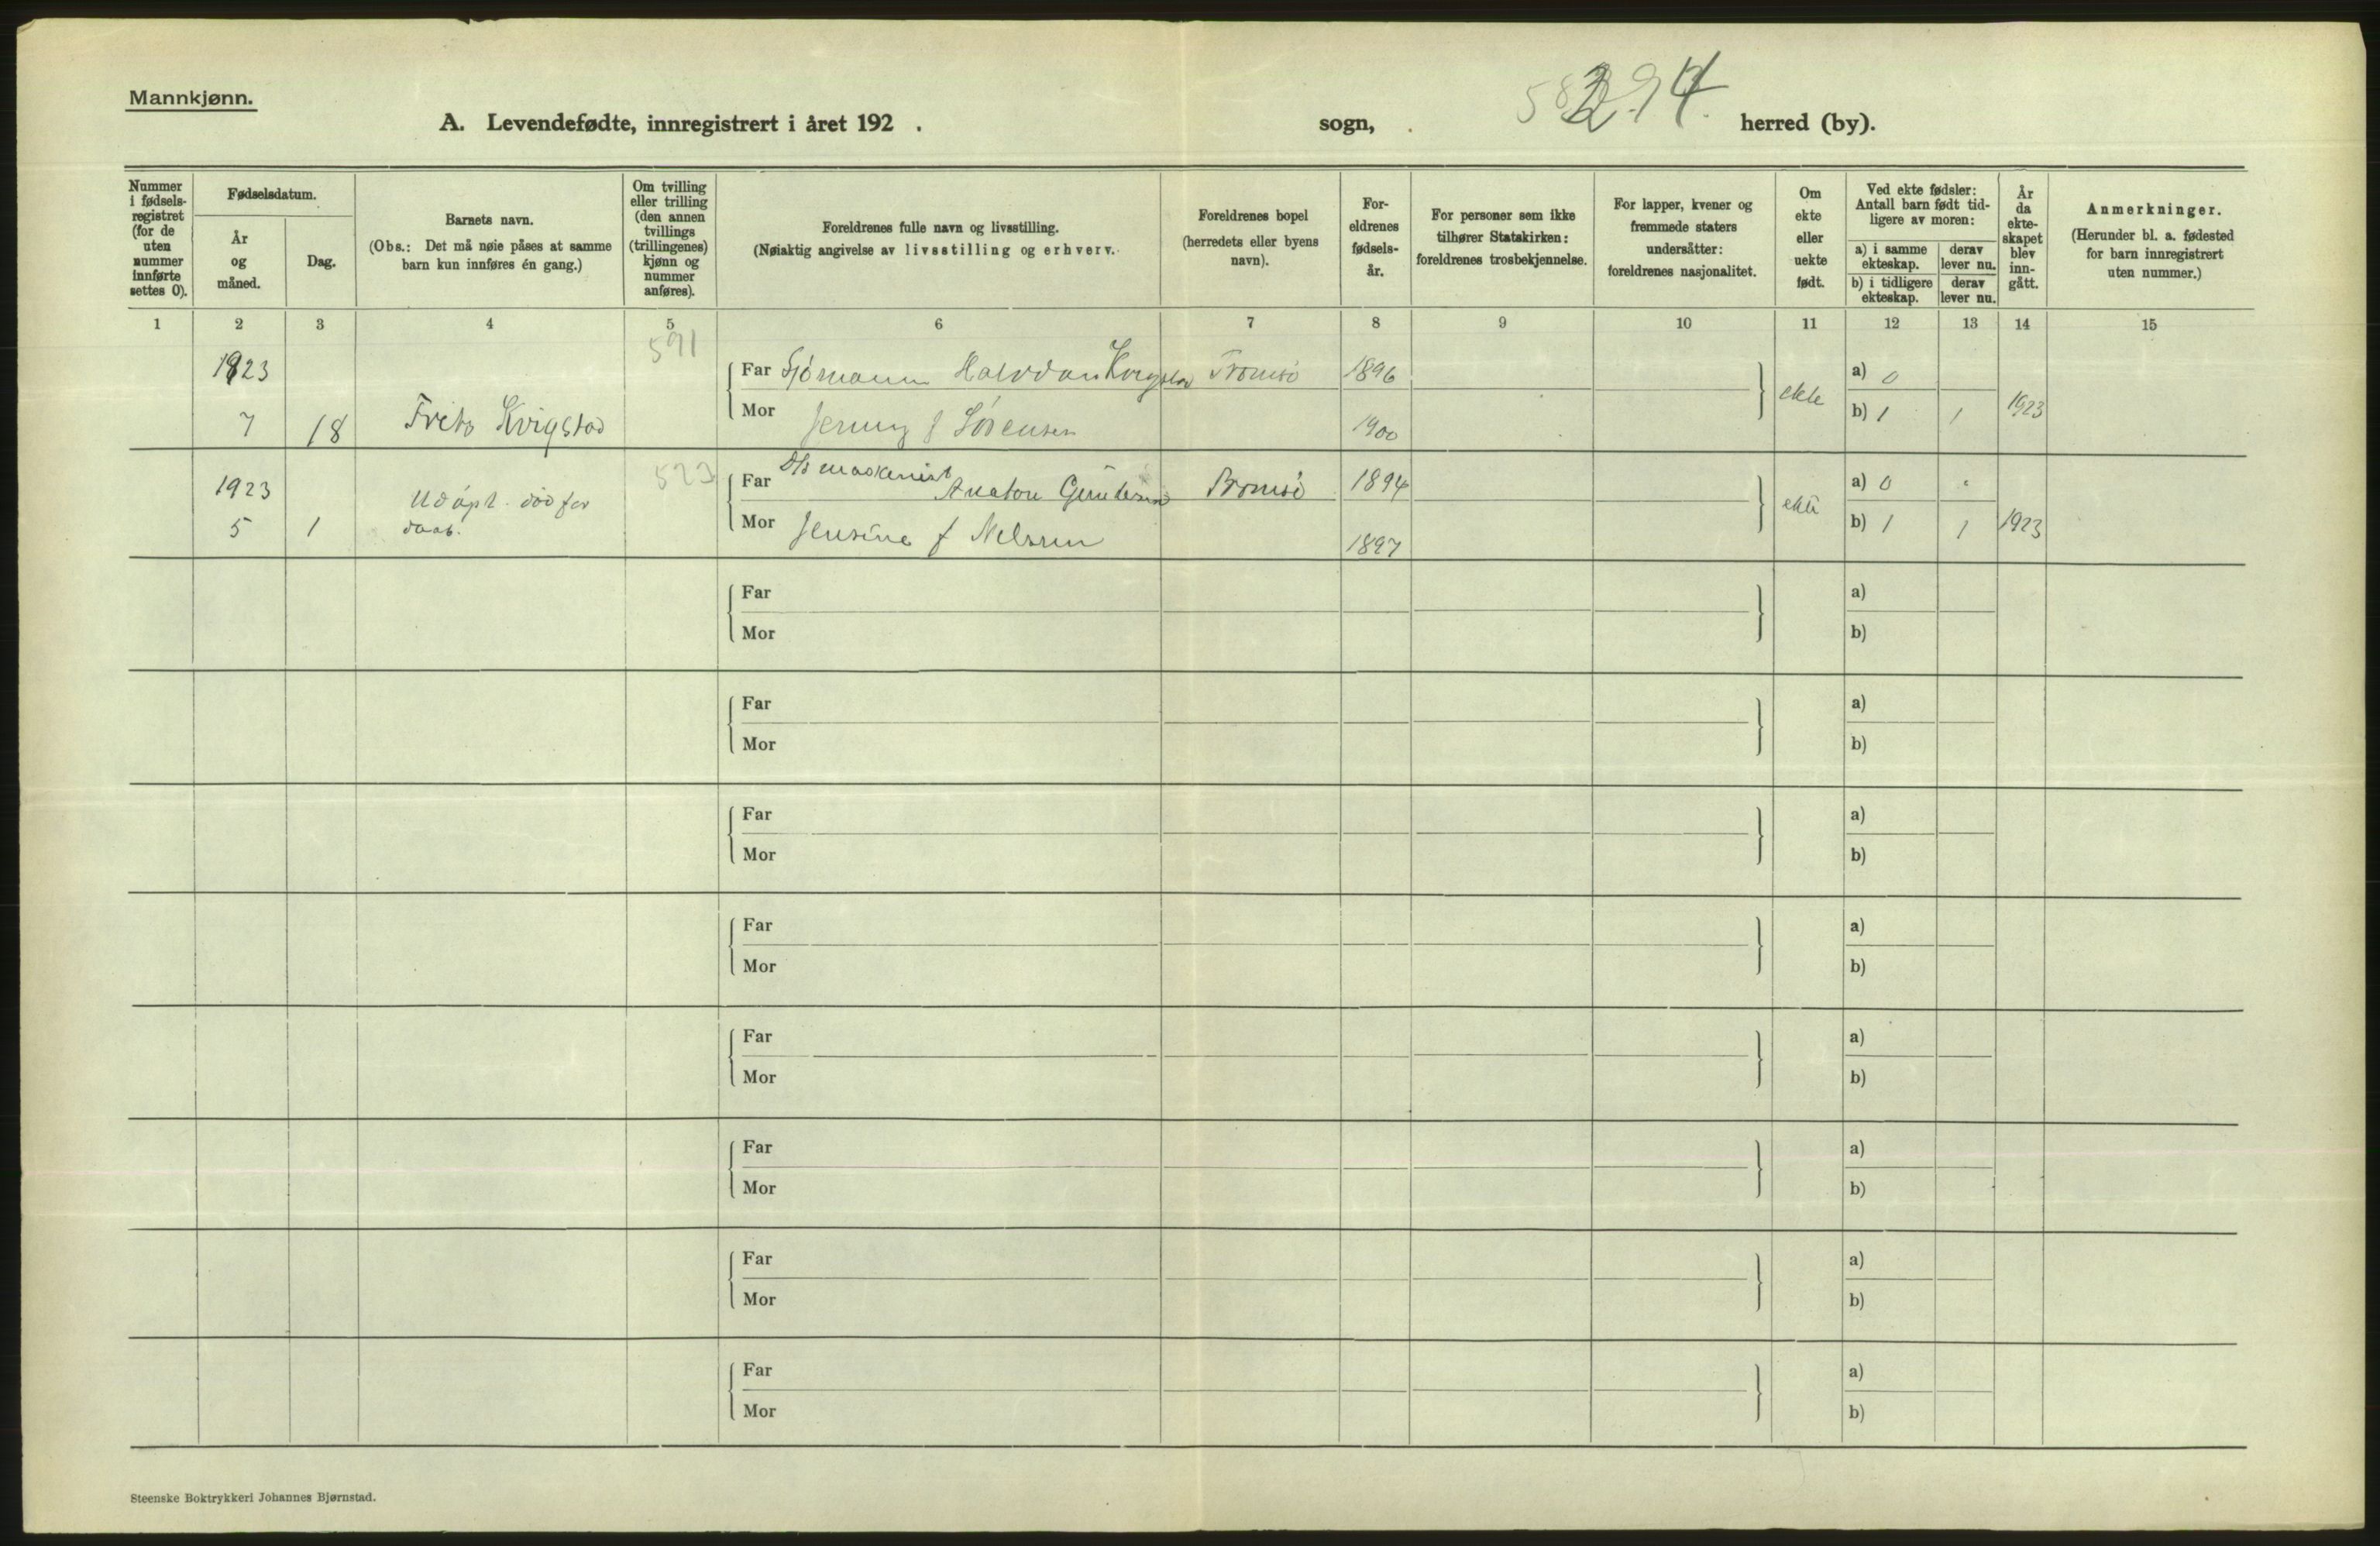 Mannkjønn.
A. Levendefødte, innregistrert i året 192 . sogn, herred (by).
294
Nummer i fødsels-registret (for de uten nummer innførte settes 0).
Fødselsdatum.
År og måned.
Dag.
Barnets navn.
(Obs.: Det må nøie påses at samme barn kun innføres én gang.)
Om tvilling eller trilling (den annen tvillings (trillingenes) kjønn og nummer anføres).
Foreldrenes fulle navn og livsstilling.
(Nøiaktig angivelse av livsstilling og erhverv.
Foreldrenes bopel
(herredets eller byens navn).
For-eldrenes fødsels-år.
For personer som ikke tilhører Statskirken: foreldrenes trosbekjennelse.
For lapper, kvener og fremmede staters undersåtter: foreldrenes nasjonalitet.
Om ekte eller uekte født.
Ved ekte fødsler: Antall barn født tid-ligere av moren:
a) i samme ekteskap.
derav lever nu.
b) i tidligere ekteskap.
derav lever nu.
År da ekte-skapet blev inn-gått.
Anmerkninger.
(Herunder bl. a. fødested for barn innregistrert uten nummer.)
1 2 3 4 5 6 7 8 9 10 11 12 13 14 15
591
1923 Far Sjømann Halvdan Kvigstad Tromsø 1896 a) 0
7 18 Frits Kvigstad Mor Jenny f Sørensen 1900 ekte b) 1 1 1923
523
1923 Udøpt død før Far maskenist Tromsø 1894 a) 0
5 1 daab. Mor Jensine f Nelsen 1897 b) 1 1 1923
Far a)
Mor b)
Far a)
Mor b)
Far a)
Mor b)
Far a)
Mor b)
Far a)
Mor b)
Far a)
Mor b)
Far a)
Mor b)
Far a)
Mor b)
Steenske Boktrykkeri Johannes Bjørnstad.